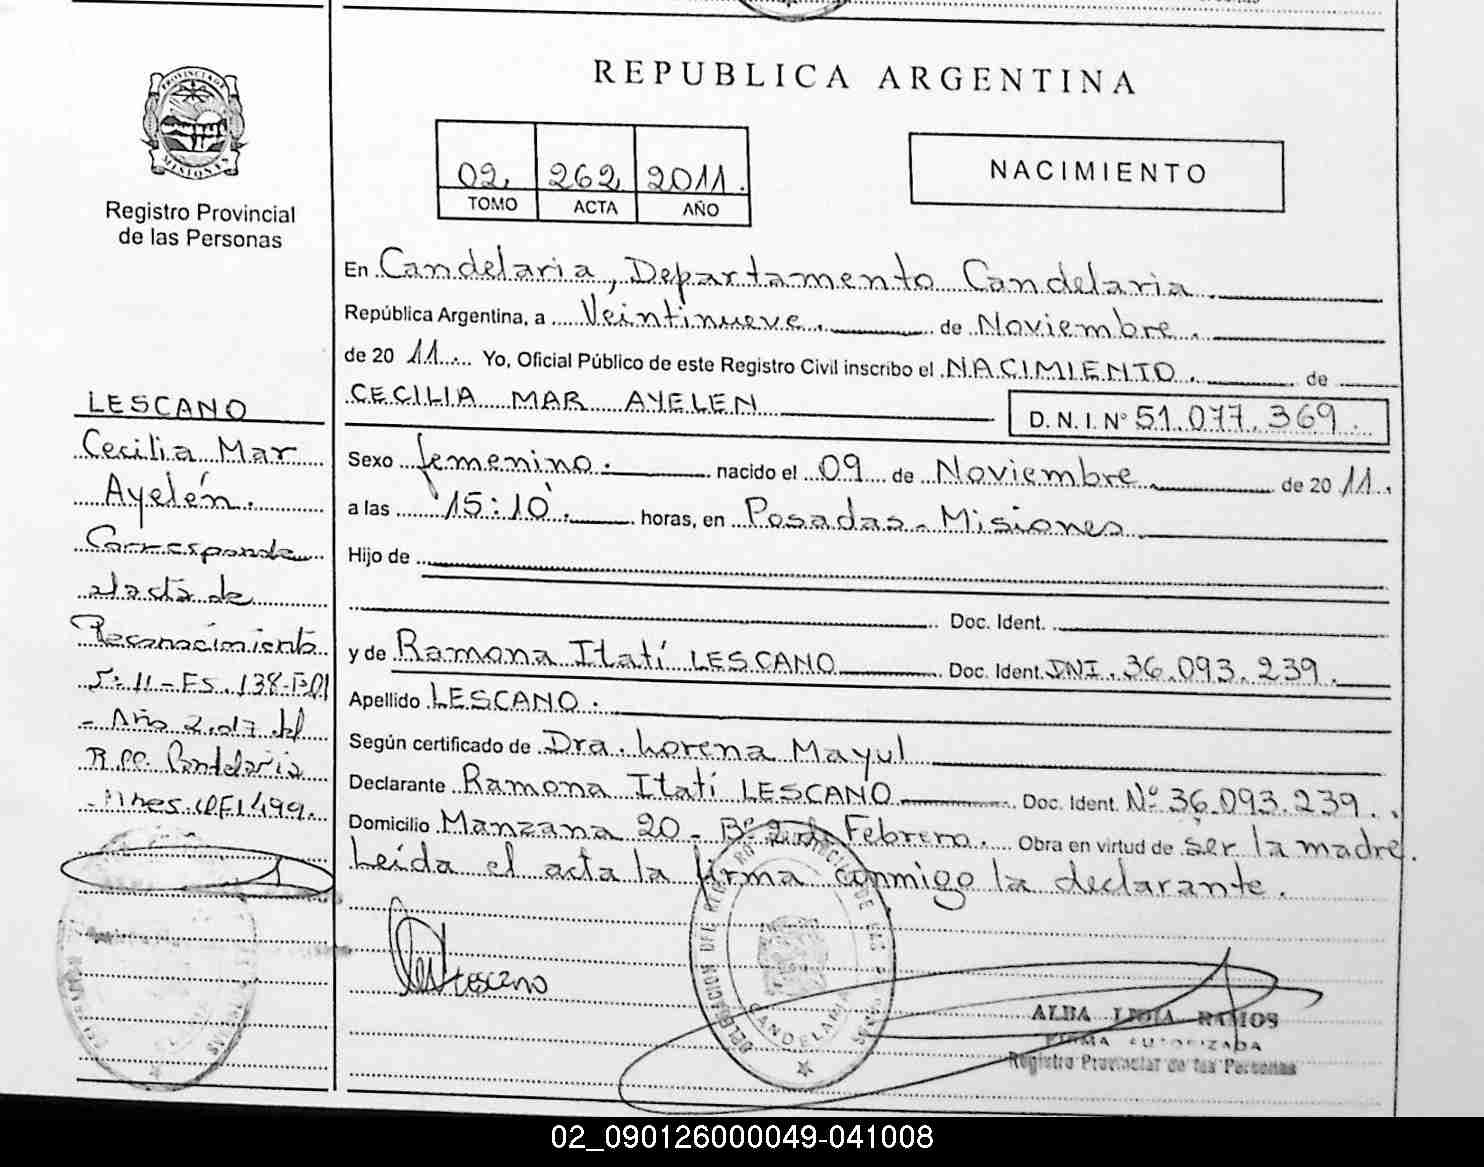 REPUBLICA ARGENTINA
PROVINCIA DE
MISIONES
Registro Provincial
de las Personas
02 262 2011.
TOMO ACTA AÑO
NACIMIENTO
En Candelaria, Departamento Candelaria
República Argentina, a Veintinueve. de Noviembre.
de 20 11 Yo, Oficial Público de este Registro Civil inscribo el NACIMIENTO. de
CECILIA MAR AYELEN D. N. I. Nº 51.077.369.
Sexo femenino. nacido el 09 de Noviembre de 20 11.
a las 15:10. horas, en Posadas - Misiones
Hijo de
Doc. Ident.
y de Ramona Itatí LESCANO Doc. Ident. DNI. 36.093.239.
Apellido LESCANO.
Según certificado de Dra. Lorena Mayul
Declarante Ramona Itatí LESCANO Doc. Ident. Nº 36.093.239.
Domicilio Manzana 20 - Bº 2 de Febrero. Obra en virtud de ser la madre.
Leída el acta la firma conmigo la declarante.
LESCANO
Cecilia Mar
Ayelén.
Corresponde
al acta de
Reconocimiento
Año 2.017 del
Candelaria
Lescano
DELEGACION DEL REGISTRO PROVINCIAL DE LAS PERSONAS
CANDELARIA
ALBA LIDIA RAMOS
FIRMA AUTORIZADA
Registro Provincial de las Personas
02_090126000049-041008